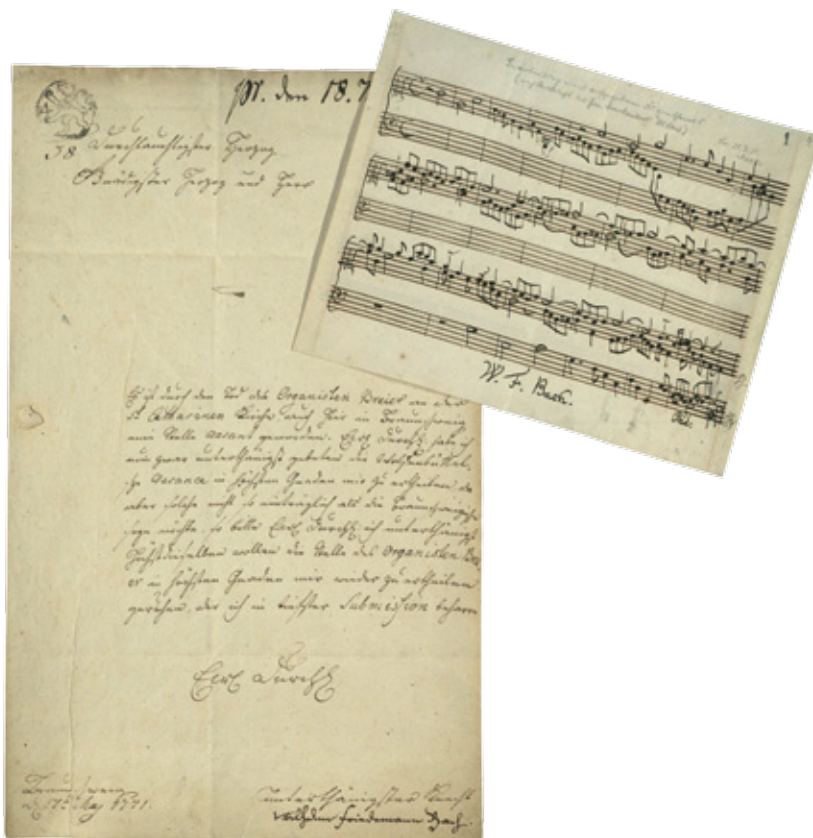 pr. den 18.
38 Durchlauchtigster Herzog
Gnädigster Herzog und Herr
Es ist durch den Tod des Organisten Breier an der
St Catharinen Kirche auch hier in Braunschweig
eine Stelle vacant geworden. Ew. Durchl. habe ich
nun zwar unterthänigst gebeten die Wolfenbüttel
sche Vacance in höchsten Gnaden mir zu ertheilen da
aber solche nicht so einträglich als die Braunschweigische
seyn möchte, so bitte Ew. Durchl. ich unterthänigst
Höchstdieselben wollen die Stelle des Organisten
in höchsten Gnaden mir wieder zu ertheilen
geruhen, der ich in tiefster Submission beharre
Ew. Durchl.
Braunschweig
d. May 1771.
unterthänigster Knecht
Wilhelm Friedemann Bach.
1
W. F. Bach.